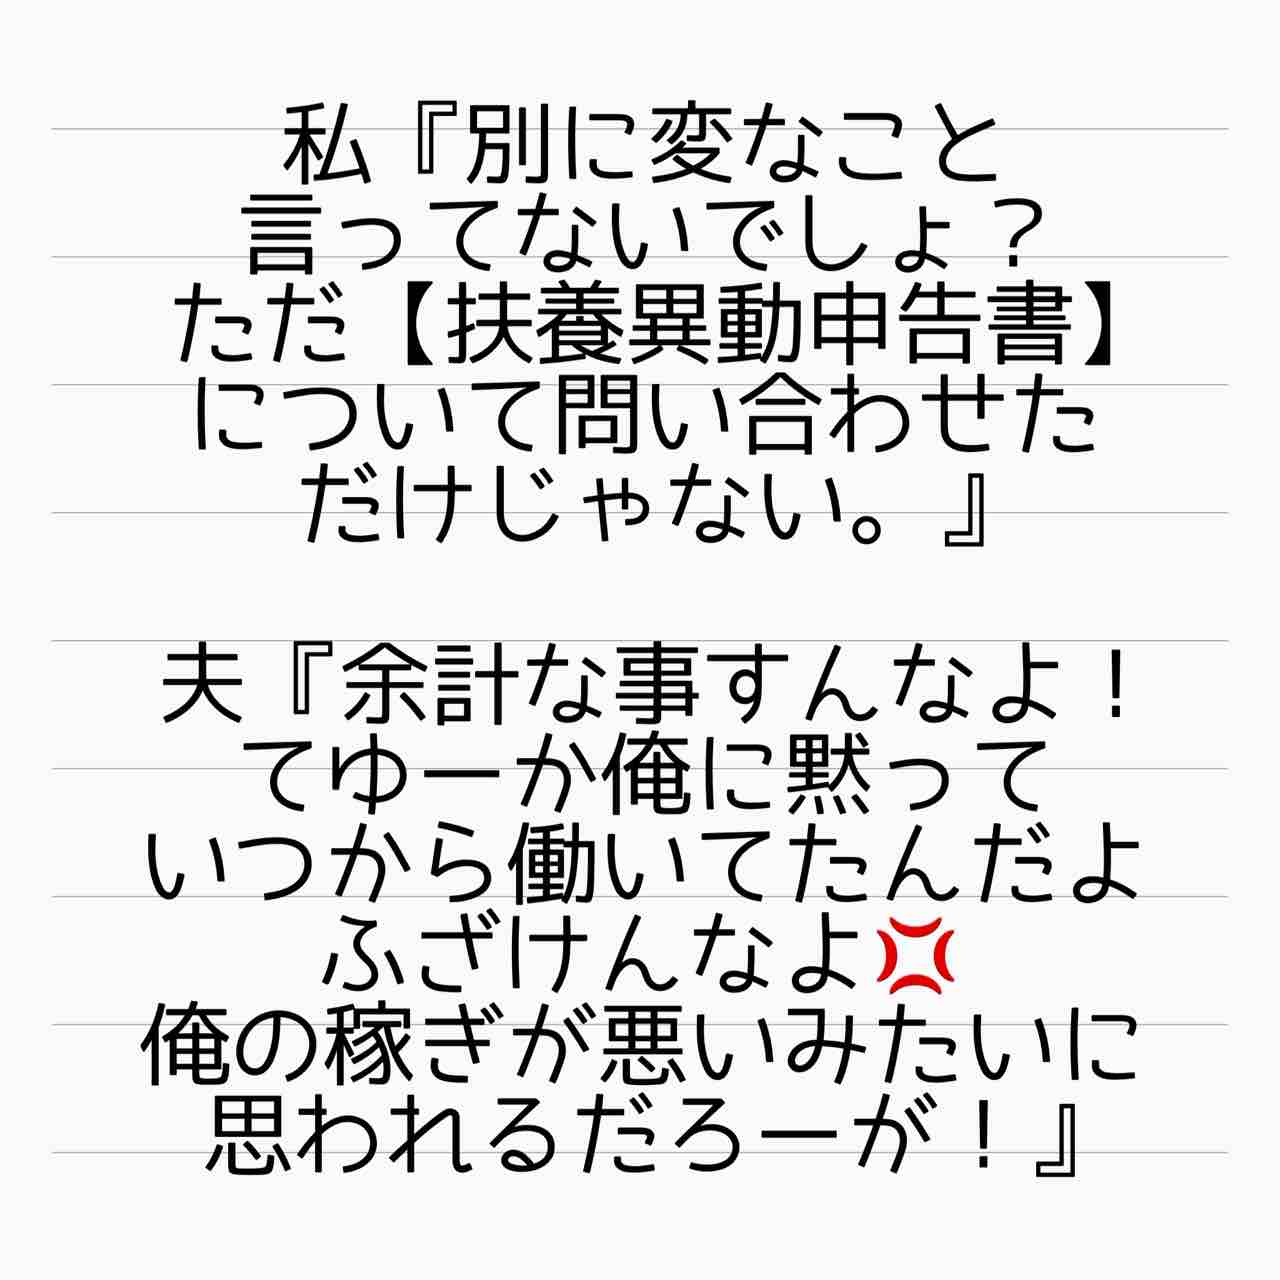 私『別に変なこと
言ってないでしょ？
ただ【扶養異動申告書】
について問い合わせた
だけじゃない。』
夫『余計な事すんなよ！
てゆーか俺に黙って
いつから働いてたんだよ
ふざけんなよ💢
俺の稼ぎが悪いみたいに
思われるだろーが！』